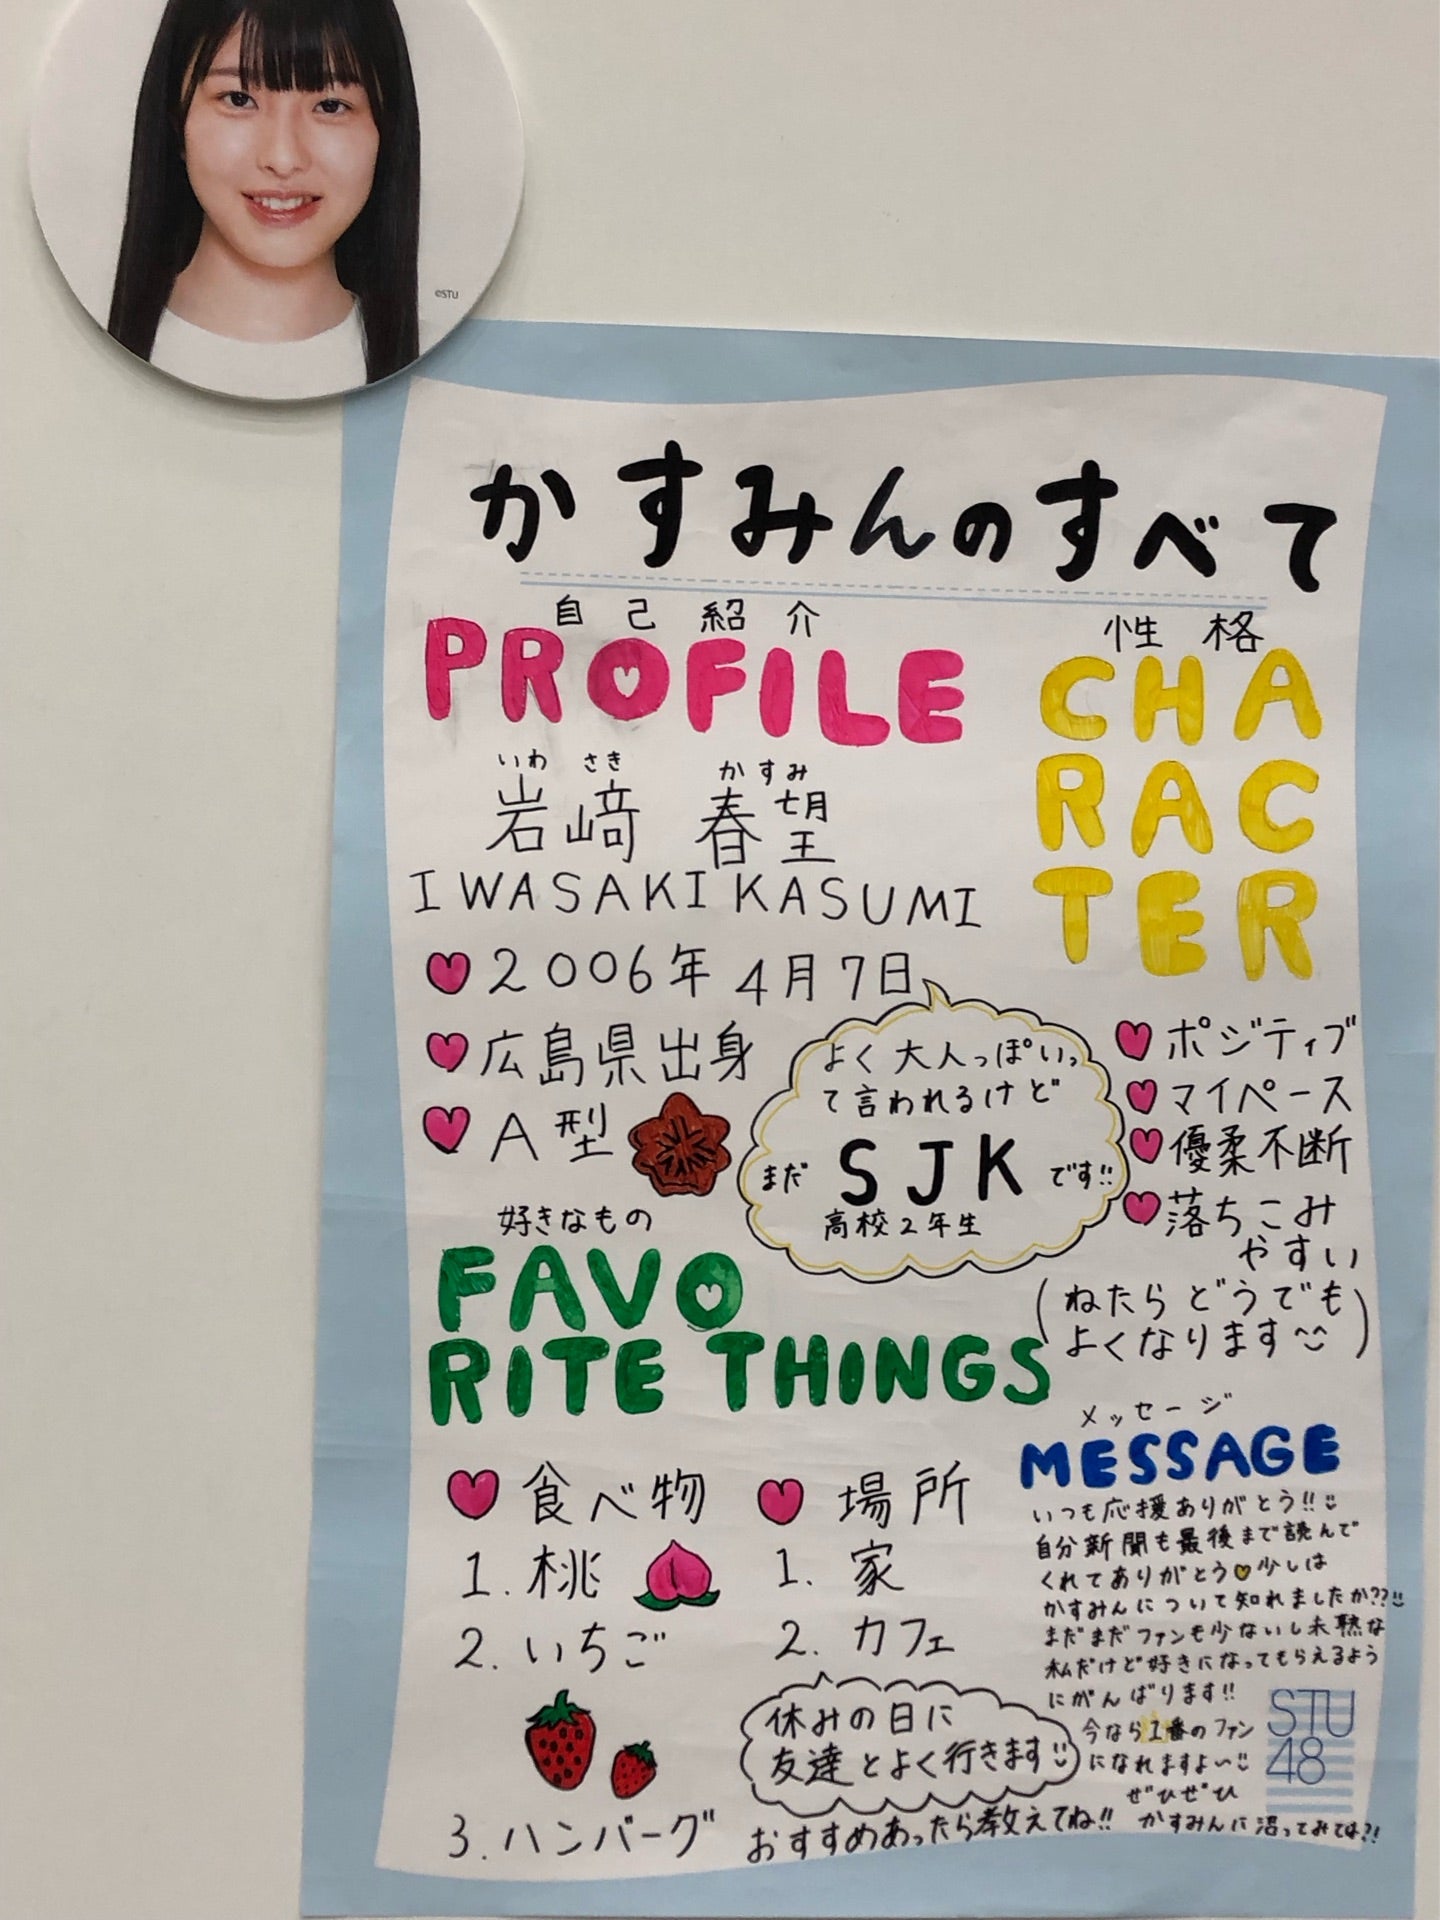 ©STU
かすみんのすべて
自己紹介
PROFILE
いわ さき かすみ
岩﨑 春望
IWASAKI KASUMI
2006年4月7日
広島県出身
A型
よく大人っぽいっ
て言われるけど
まだ SJK です!!
高校2年生
性格
CHA
RAC
TER
ポジティブ
マイペース
優柔不断
落ちこみ
やすい
(ねたらどうでも
よくなります)
好きなもの
FAVO
RITE THINGS
食べ物
1. 桃
2. いちご
3. ハンバーグ
場所
1. 家
2. カフェ
休みの日に
友達とよく行きます
おすすめあったら教えてね!!
メッセージ
MESSAGE
いつも応援ありがとう!!
自分新聞も最後まで読んで
くれてありがとう♡少しは
かすみんについて知れましたか??
まだまだファンも少ないし未熟な
私だけど好きになってもらえるよう
にがんばります!!
今なら1番のファン
になれますよ〜
ぜひぜひ
かすみんに沼ってみてね?!
STU
48